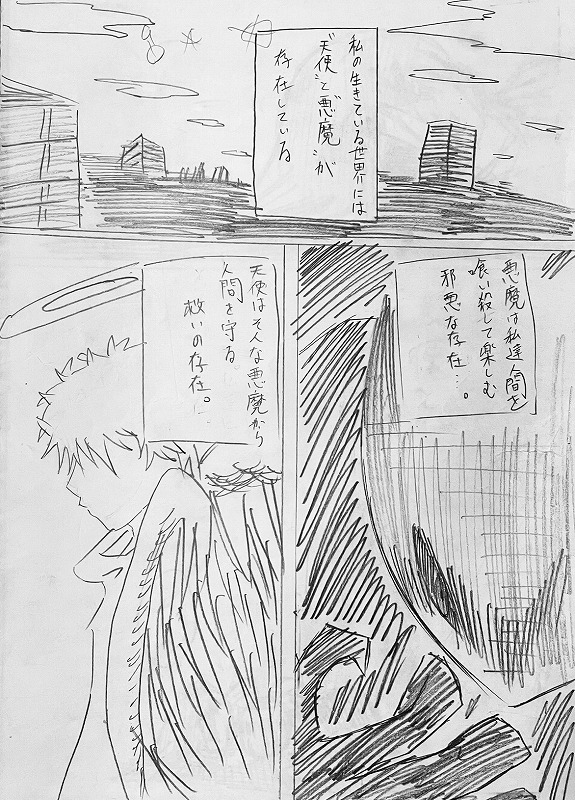 私の生きている世界には
"天使"と"悪魔"が
存在している
悪魔は私達人間を
喰い殺して楽しむ
邪悪な存在…。
天使はそんな悪魔から
人間を守る
救いの存在。…